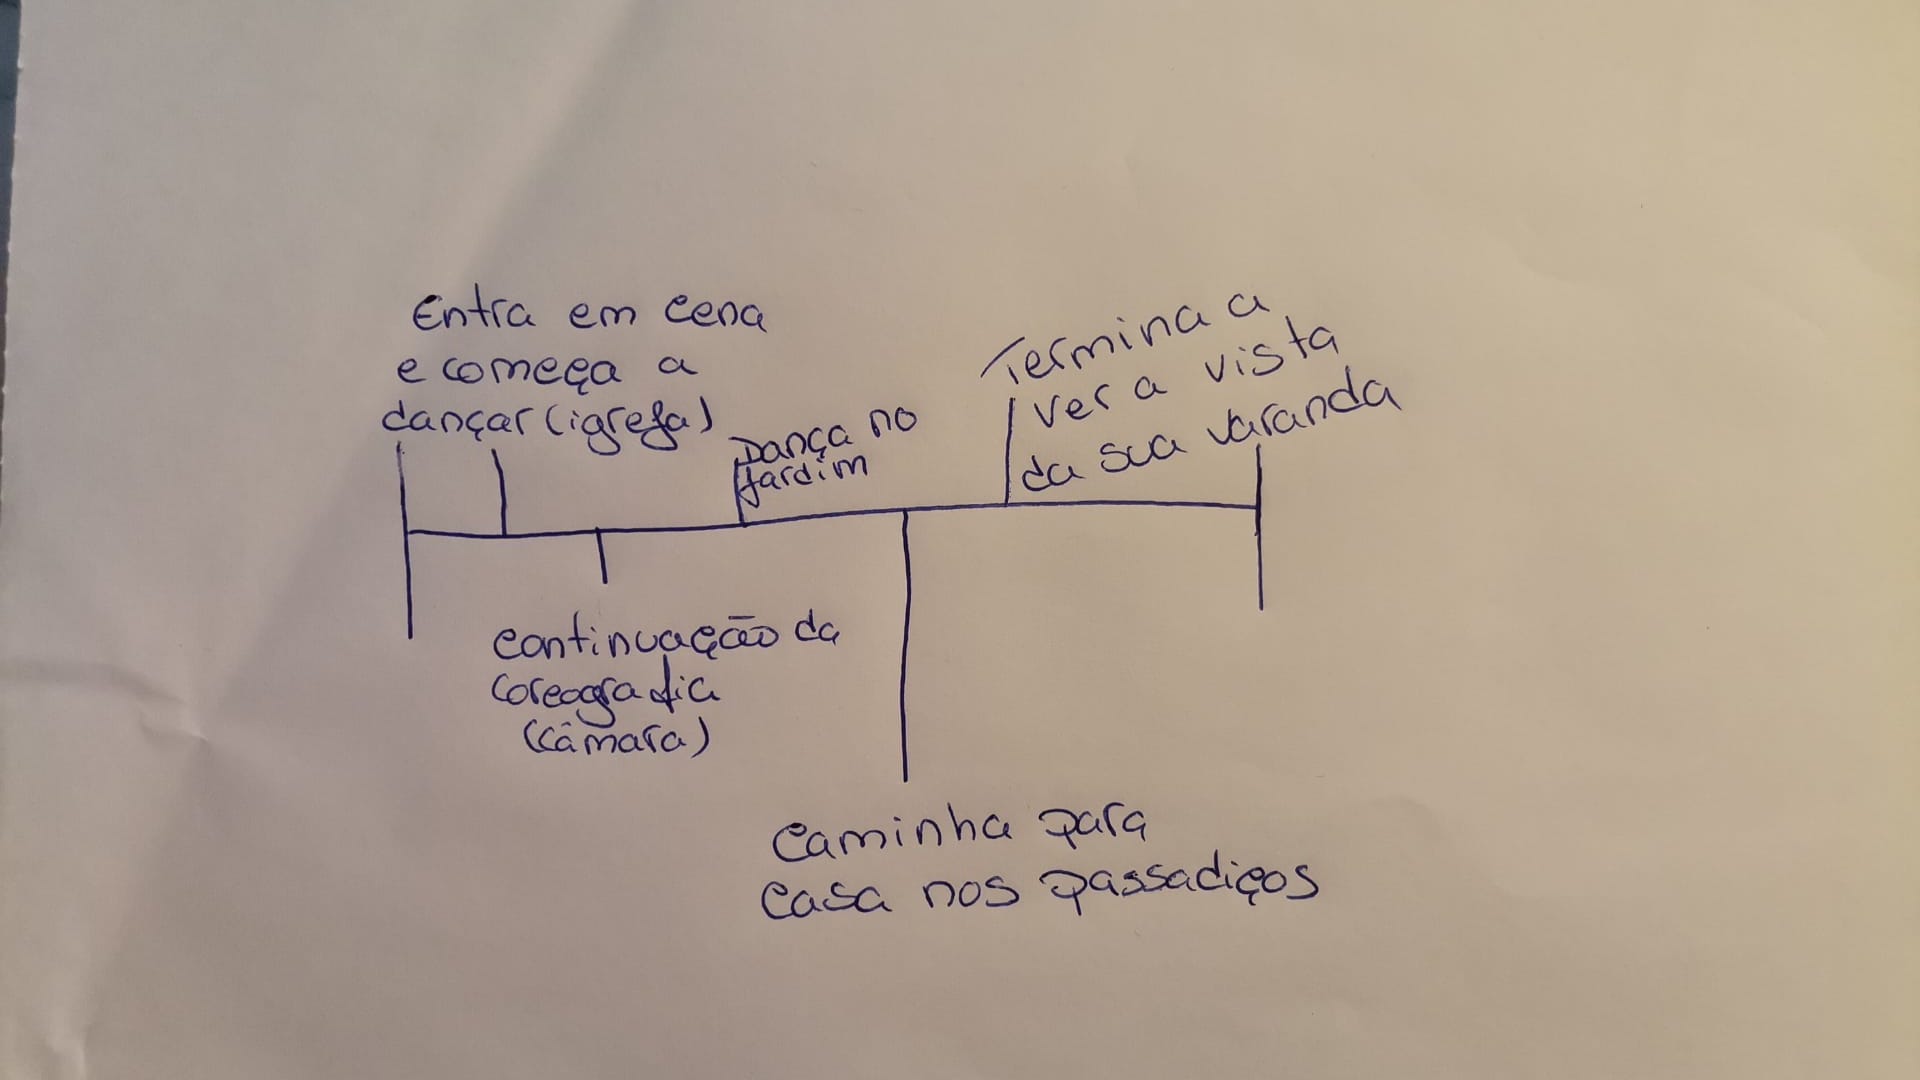 Entra em cena
e começa a
dançar (igreja)
Dança no
jardim
Termina a
ver a vista
da sua varanda
continuação da
coreografia
(câmara)
Caminha para
casa nos passadiços